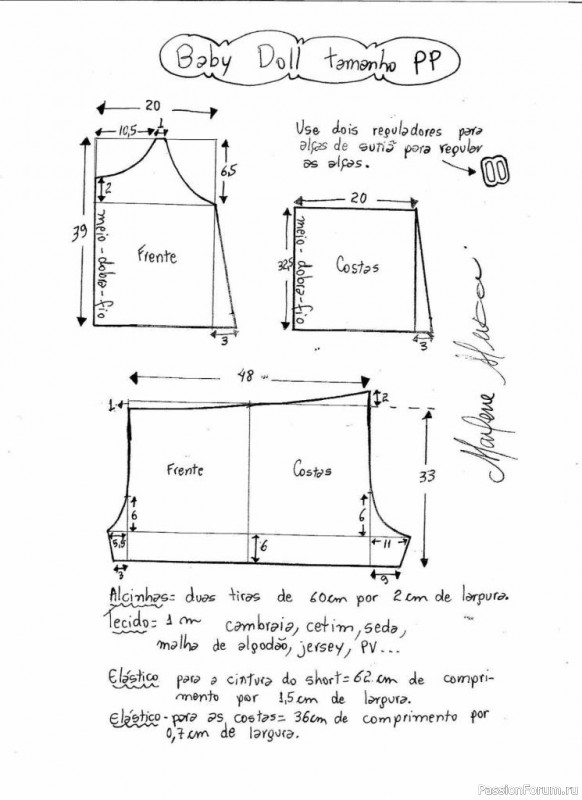 Baby Doll tamanho PP
20
10,5
1
6,5
2
39
meio-dobra-fio
Frente
3
Use dois reguladores para
alças de sutiã para regular
as alças.
20
32,5
meio-dobra-fio
Costas
3
Marlene
48
1
2
Frente
Costas
33
6
6
5,5
6
11
3
9
Alcinhas= duas tiras de 60cm por 2cm de largura.
Tecido= 1 m cambraia, cetim, seda,
malha de algodão, jersey, PV...
Elástico para a cintura do short= 62 cm de compri-
mento por 1,5cm de largura.
Elástico-para as costas= 36cm de comprimento por
0,7cm de largura.
PassionForum.ru